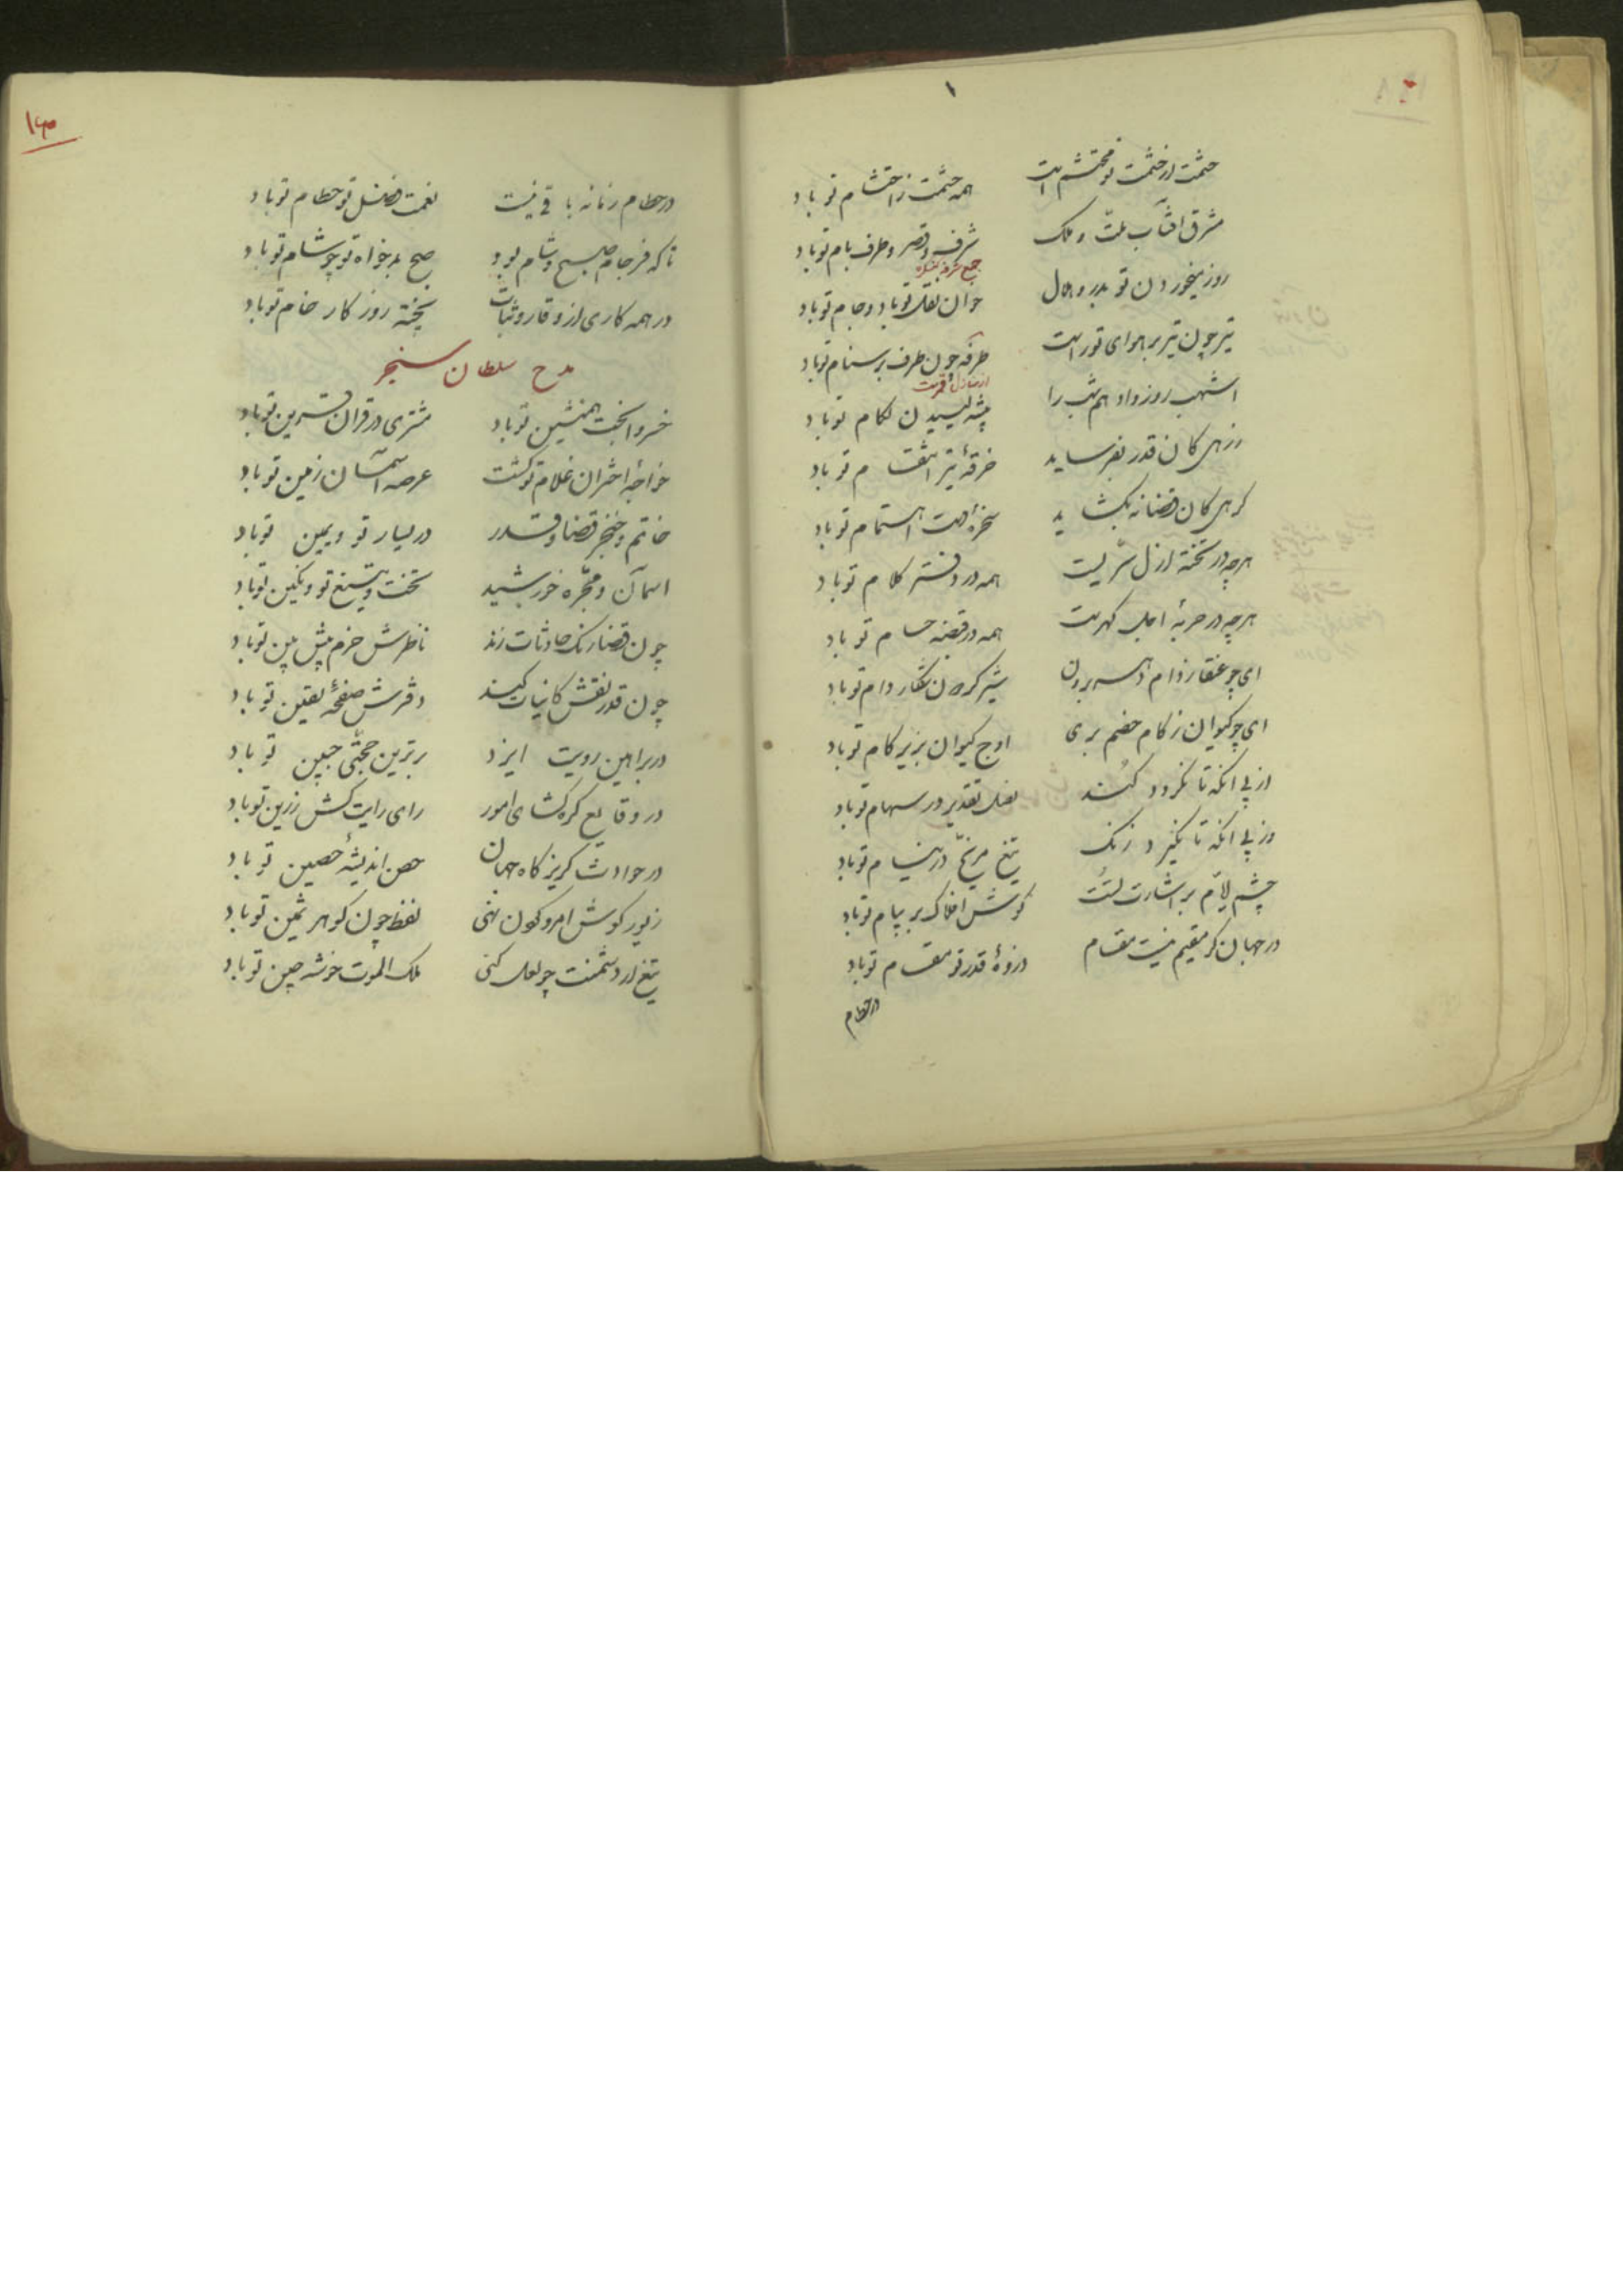 ۱
حشمت از حشمت تو محتشم است همه حشمت ز احتشام تو باد
مشرق آفتاب ملّت و ملک شرف و قصر و طرف بام تو باد
جمع شرفه کنگره
روز میخوردن تو بدر و هلال خوان نقل تو باد و جام تو باد
تیر چون تیر بر هوای تو راست طرفه چون طرف بر ستام تو باد
از منازل قمرست
اشهب روز و ادهم شب را پیشه لیسیدن لکام تو باد
ور زهی کان قدر بفرساید خرقهٔ تیر انتقام تو باد
کرهی کان قضا نه بکشاید سخرهٔ دست اهتمام تو باد
هرچه در تختهٔ ازل سرّیست همه در دفتر کلام تو باد
هرچه در حربهٔ اجل کهریست همه در قبضهٔ حسام تو باد
ای چو عنقا ز دام دهر برون شیر کردون شکار دام تو باد
ای چو کیوان ز کام خصم بری اوج کیوان بزیر کام تو باد
از پی انکه تا نکردد کند نصل تقدیر در سهام تو باد
وز پی انکه تا نکیرد زنک تیغ مریخ در نیام تو باد
چشم ایام بر اشارت تست کوش افلاک بر پیام تو باد
در جهان کر مقیم نیست مقام ذروهٔ قدر تو مقام تو باد
در حطام
در حطام زمانه باقی نیست نعمت فضل تو حطام تو باد
تا که فرجام صبح و شام بود صبح بدخواه تو چو شام تو باد
در همه کاری از وقار و ثبات پخته روزکار خام تو باد
مدح سلطان سنجر
خسروا بخت همنشین تو باد مشتری در قران قرین تو باد
خواجهٔ اختران غلام تو کشت عرصهٔ آسمان زمین تو باد
خاتم و خنجر قضا و قدر در یسار تو و یمین تو باد
اسمان و مجرّه خورشید تخت و تیغ تو و نکین تو باد
چون قضا رنک حادثات زند ناظرش حزم پیش بین تو باد
چون قدر نقش کاینات کند دفترش صفحهٔ یقین تو باد
در براهین رویت ایزد برترین حجّتی جبین تو باد
در وقایع کره کشای امور رای رایت کش رزین تو باد
در حوادث کریزکاه جهان حصن اندیشهٔ حصین تو باد
زیور کوش امر و کون نهی لفظ چون کوهر ثمین تو باد
تیغ از دشمنت چو لعل کنی ملک الموت خوشه چین تو باد